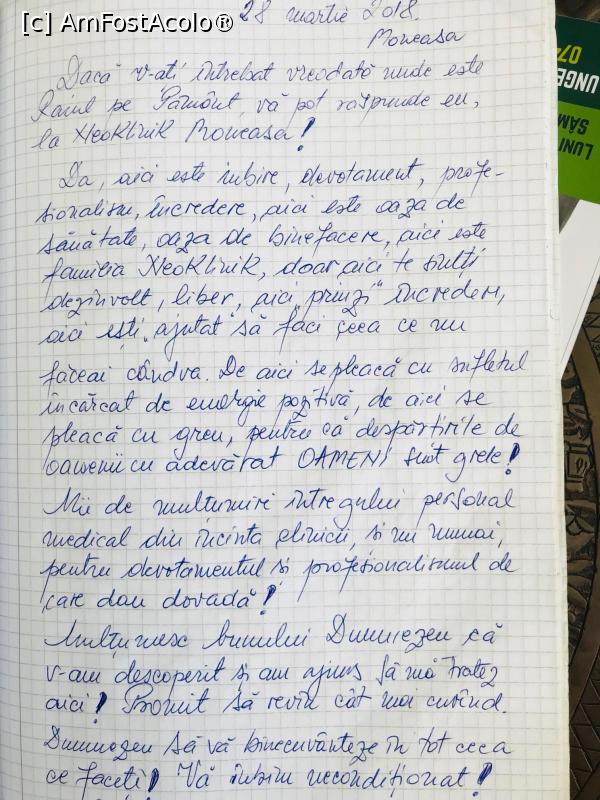 [c] AmFostAcolo®
28 martie 2018.
Moneasa
Dacă v-ați întrebat vreodată unde este
Raiul pe Pământ, vă pot răspunde eu,
la NeoKlinik Moneasa!
Da, aici este iubire, devotament, profe-
sionalism, încredere, aici este oaza de
sănătate, oaza de binefacere, aici este
familia NeoKlinik, doar aici te simți
dezinvolt, liber, aici „prinzi" încredere,
aici ești ajutat să faci ceea ce nu
făceai cândva. De aici se pleacă cu sufletul
încărcat de energie pozitivă, de aici se
pleacă cu greu, pentru că despărțirile de
oamenii cu adevărat OAMENI sunt grele!
Mii de mulțumiri întregului personal
medical din incinta clinicii, și nu numai,
pentru devotamentul și profesionalismul de
care dau dovadă!
Mulțumesc bunului Dumnezeu că
v-am descoperit și am ajuns să mă tratez
aici! Promit să revin cât mai curând.
Dumnezeu să vă binecuvânteze în tot ceea
ce faceți! Vă iubim necondiționat!
UNGE
074
LUNI
SÂM